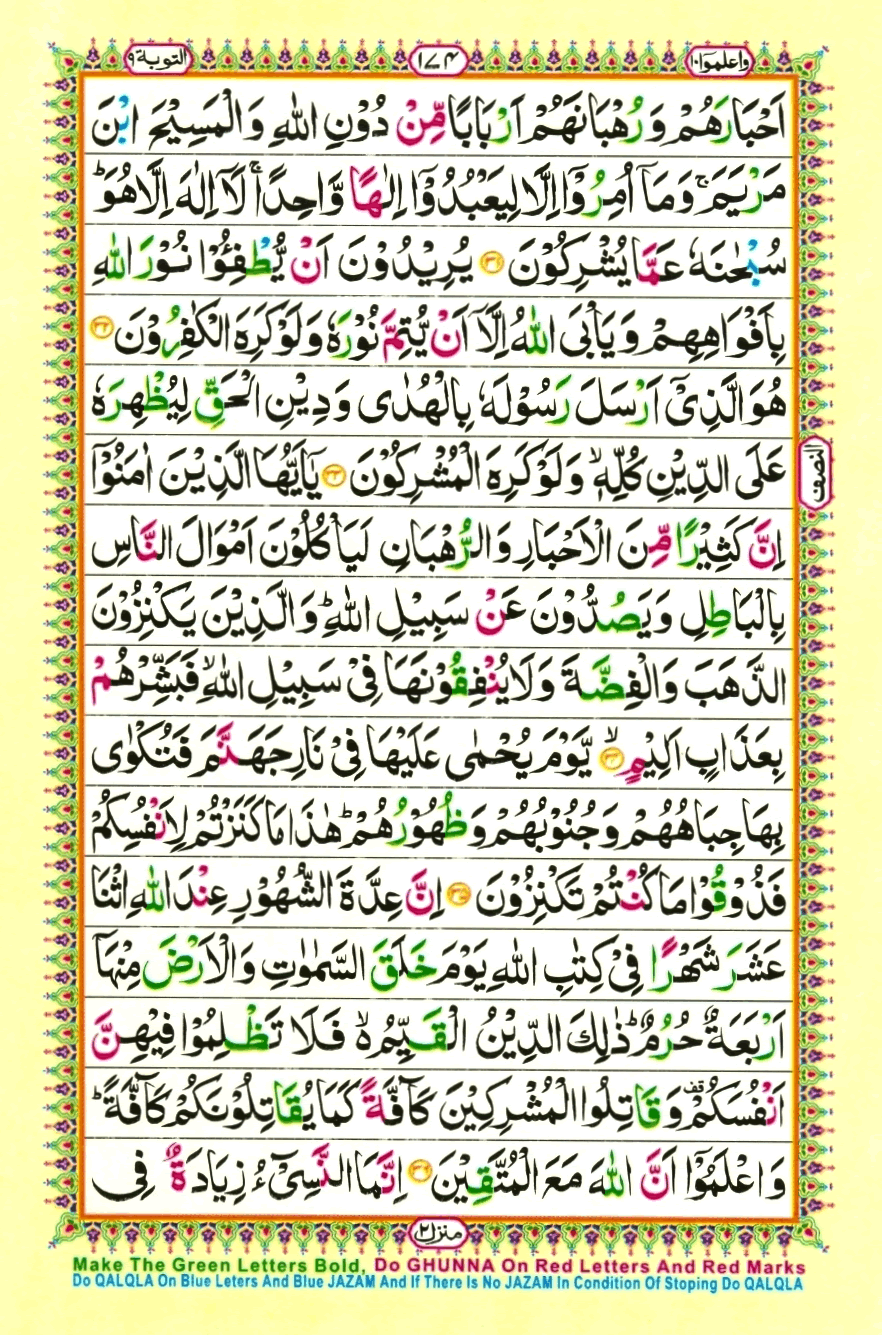 واعلموا ١٠
١٧٤
التوبة ٩
اَحْبَارَهُمْ وَرُهْبَانَهُمْ اَرْبَابًا مِّنْ دُوْنِ اللّٰهِ وَالْمَسِيْحَ ابْنَ
مَرْيَمَ ۚ وَمَاۤ اُمِرُوْۤا اِلَّا لِيَعْبُدُوْۤا اِلٰهًا وَّاحِدًا ۚ لَاۤ اِلٰهَ اِلَّا هُوَ ؕ
سُبْحٰنَهٗ عَمَّا يُشْرِكُوْنَ ﴿۳۱﴾ يُرِيْدُوْنَ اَنْ يُّطْفِـُٔوْا نُوْرَ اللّٰهِ
بِاَفْوَاهِهِمْ وَيَاْبَى اللّٰهُ اِلَّاۤ اَنْ يُّتِمَّ نُوْرَهٗ وَلَوْ كَرِهَ الْكٰفِرُوْنَ ﴿۳۲﴾
هُوَ الَّذِىْۤ اَرْسَلَ رَسُوْلَهٗ بِالْهُدٰى وَدِيْنِ الْحَقِّ لِيُظْهِرَهٗ
عَلَى الدِّيْنِ كُلِّهٖ ۙ وَلَوْ كَرِهَ الْمُشْرِكُوْنَ ﴿۳۳﴾ يٰۤاَيُّهَا الَّذِيْنَ اٰمَنُوْۤا
النصف
اِنَّ كَثِيْرًا مِّنَ الْاَحْبَارِ وَالرُّهْبَانِ لَيَاْكُلُوْنَ اَمْوَالَ النَّاسِ
بِالْبَاطِلِ وَيَصُدُّوْنَ عَنْ سَبِيْلِ اللّٰهِ ؕ وَالَّذِيْنَ يَكْنِزُوْنَ
الذَّهَبَ وَالْفِضَّةَ وَلَا يُنْفِقُوْنَهَا فِىْ سَبِيْلِ اللّٰهِ ۙ فَبَشِّرْهُمْ
بِعَذَابٍ اَلِيْمٍ ۙ﴿۳۴﴾ يَّوْمَ يُحْمٰى عَلَيْهَا فِىْ نَارِ جَهَنَّمَ فَتُكْوٰى
بِهَا جِبَاهُهُمْ وَجُنُوْبُهُمْ وَظُهُوْرُهُمْ ؕ هٰذَا مَا كَنَزْتُمْ لِاَنْفُسِكُمْ
فَذُوْقُوْا مَا كُنْتُمْ تَكْنِزُوْنَ ﴿۳۵﴾ اِنَّ عِدَّةَ الشُّهُوْرِ عِنْدَ اللّٰهِ اثْنَا
عَشَرَ شَهْرًا فِىْ كِتٰبِ اللّٰهِ يَوْمَ خَلَقَ السَّمٰوٰتِ وَالْاَرْضَ مِنْهَاۤ
اَرْبَعَةٌ حُرُمٌ ؕ ذٰلِكَ الدِّيْنُ الْقَيِّمُ ۙ۬ فَلَا تَظْلِمُوْا فِيْهِنَّ
اَنْفُسَكُمْ ۫ وَقَاتِلُوا الْمُشْرِكِيْنَ كَآفَّةً كَمَا يُقَاتِلُوْنَكُمْ كَآفَّةً ؕ
وَاعْلَمُوْۤا اَنَّ اللّٰهَ مَعَ الْمُتَّقِيْنَ ﴿۳۶﴾ اِنَّمَا النَّسِىْٓءُ زِيَادَةٌ فِى
منزل ۲
Make The Green Letters Bold, Do GHUNNA On Red Letters And Red Marks
Do QALQLA On Blue Leters And Blue JAZAM And If There Is No JAZAM In Condition Of Stoping Do QALQLA